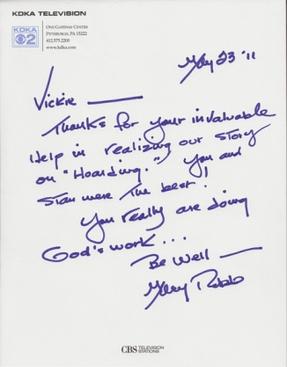 KDKA TELEVISION
KDKA
2
One Gateway Center
Pittsburgh, PA 15222
412.575.2200
www.kdka.com
May 23 '11
Vickie —
Thanks for your invaluable
Help in realizing our story
on "Hoarding." You and
Stan were the best!
You really are doing
God's work...
Be Well —
CBS TELEVISION
STATIONS